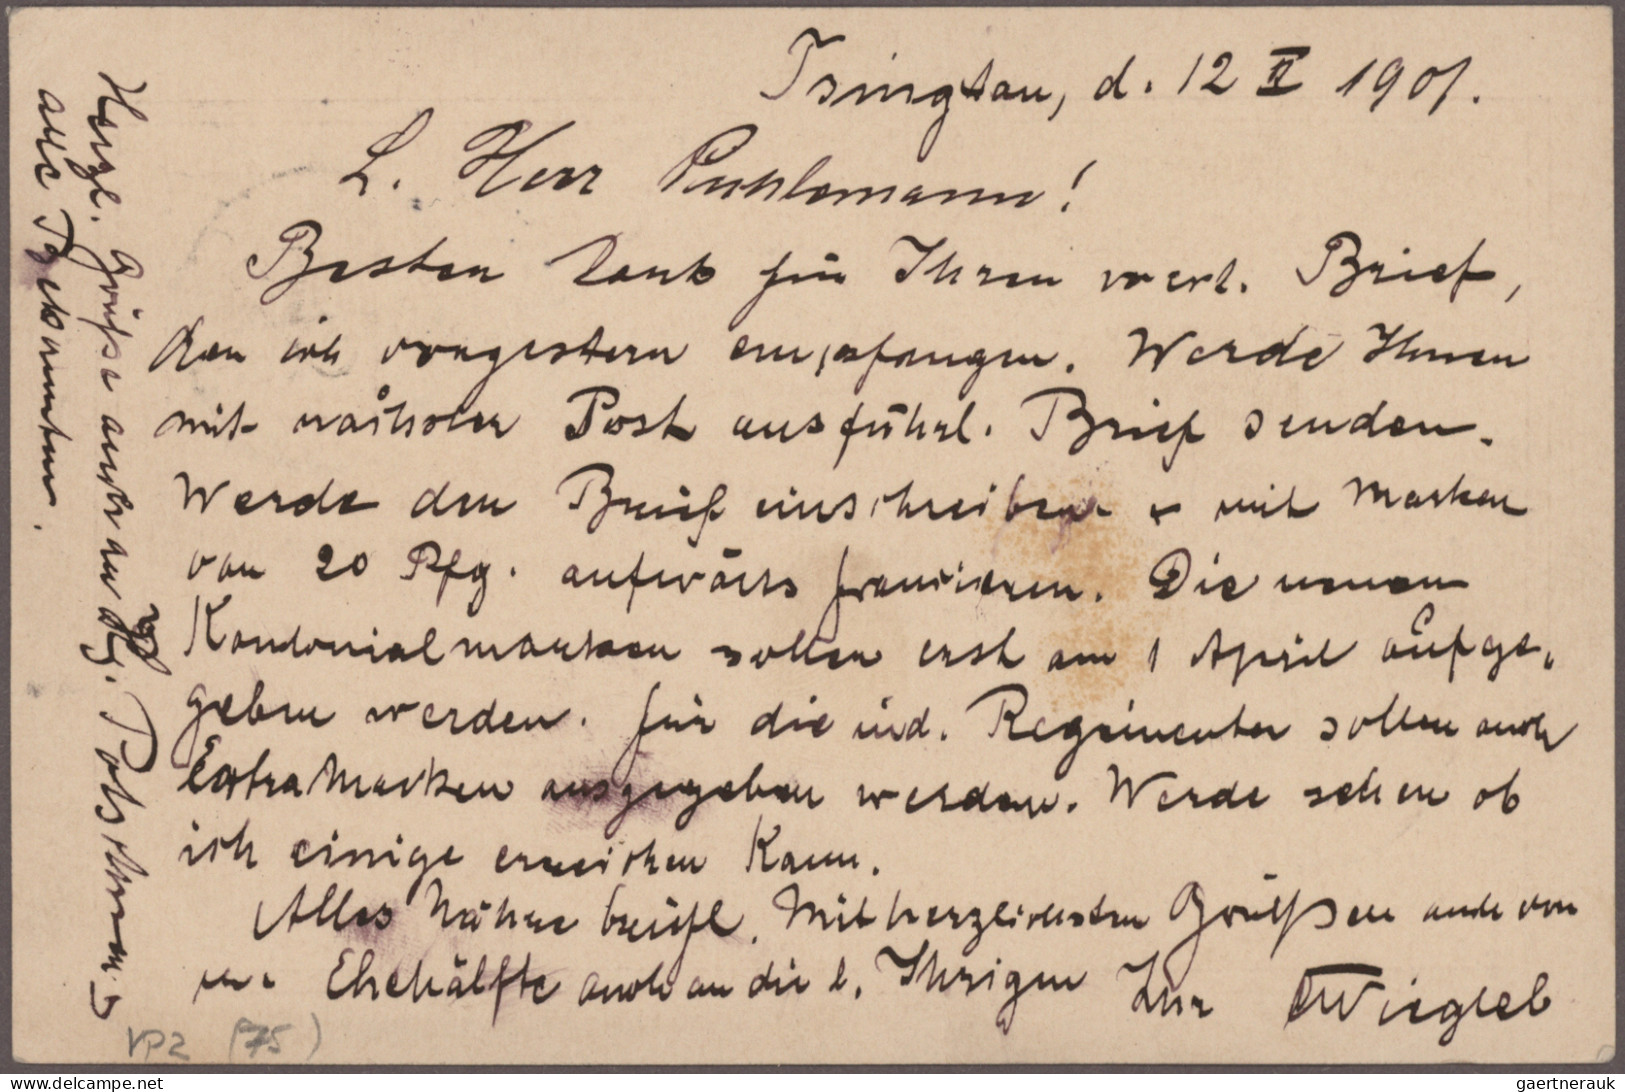 Tsingtau, d. 12 II 1901.
L. Herr Puhlemann!
Besten Dank für Ihren wert. Brief,
den ich vorgestern empfangen. Werde Ihnen
mit nächster Post ausführl. Brief senden.
Werde den Brief einschreiben u mit Marken
von 20 Pfg. aufwärts frankieren. Die neuen
Kolonialmarken sollen erst am 1 April aufge-
geben werden. Für die ind. Regimenter sollen auch
Extra Marken ausgegeben werden. Werde sehen ob
ich einige erreichen Kann.
Alles Nähere briefl. Mit herzlichsten Grüßen auch von
m. Ehehälfte auch an die l. Ihrigen Ihr Wiegleb
Herzl. Grüße auch an
alle Bekannten.
VP2 (75)
gaertnerauk